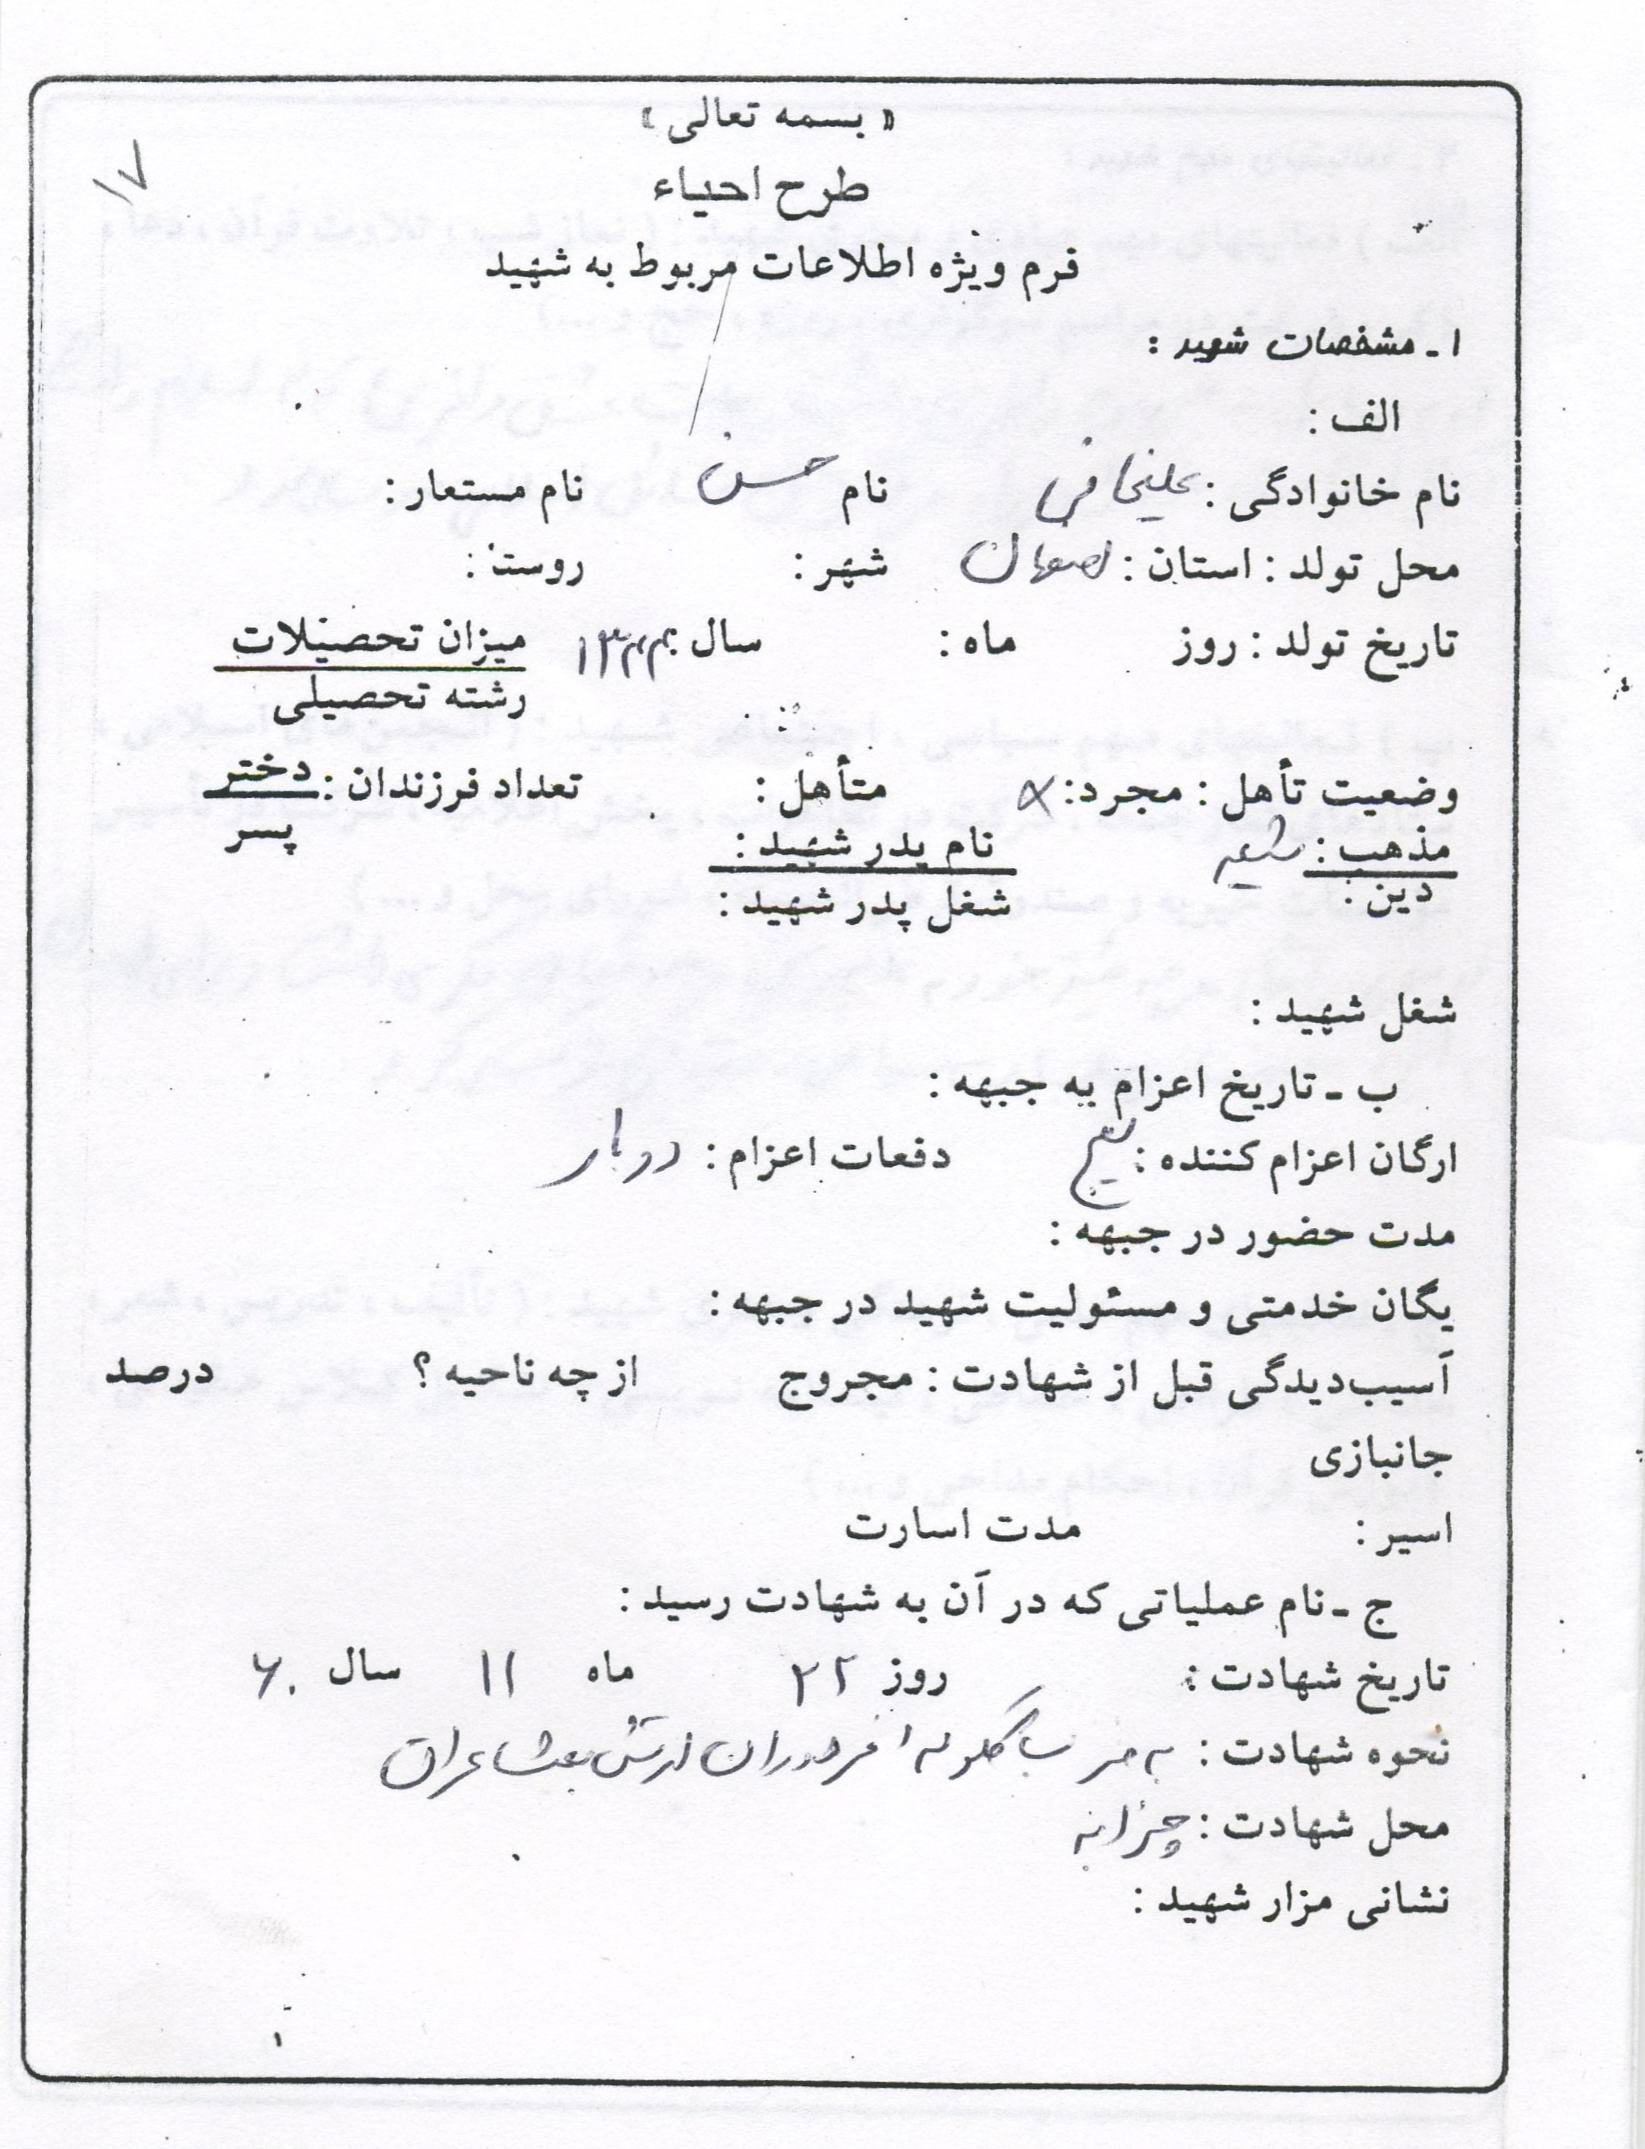 « بسمه تعالی »
۱۷
طرح احیاء
فرم ویژه اطلاعات مربوط به شهید
۱ ـ مشخصات شهید :
الف :
نام خانوادگی : علینجافی نام حسن نام مستعار :
محل تولد : استان : اصفهان شهر : روستا :
تاریخ تولد : روز ماه : سال ۱۳۴۳ میزان تحصیلات
رشته تحصیلی
وضعیت تأهل : مجرد : × متأهل : تعداد فرزندان : دختر
پسر
مذهب : شیعه نام پدر شهید :
دین : شغل پدر شهید :
شغل شهید :
ب ـ تاریخ اعزام به جبهه :
ارگان اعزام کننده : بسیج دفعات اعزام : دوبار
مدت حضور در جبهه :
یگان خدمتی و مسئولیت شهید در جبهه :
آسیب‌دیدگی قبل از شهادت : مجروح از چه ناحیه ؟ درصد
جانبازی
اسیر : مدت اسارت
ج ـ نام عملیاتی که در آن به شهادت رسید :
تاریخ شهادت : روز ۲۲ ماه ۱۱ سال ۶۰
نحوه شهادت : به ضرب گلوله مزدوران ارتش بعث عراق
محل شهادت : چزابه
نشانی مزار شهید :
۱